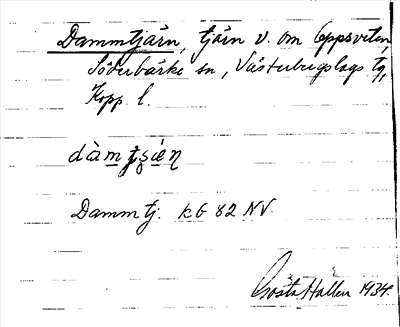 Dammtjärn, tjärn v. om Toppsveten,
Söderbärke sn, Västerbergslags tg,
Kopp. l.
Dammtj. kb 82 NV.
Gösta Hallen 1934.